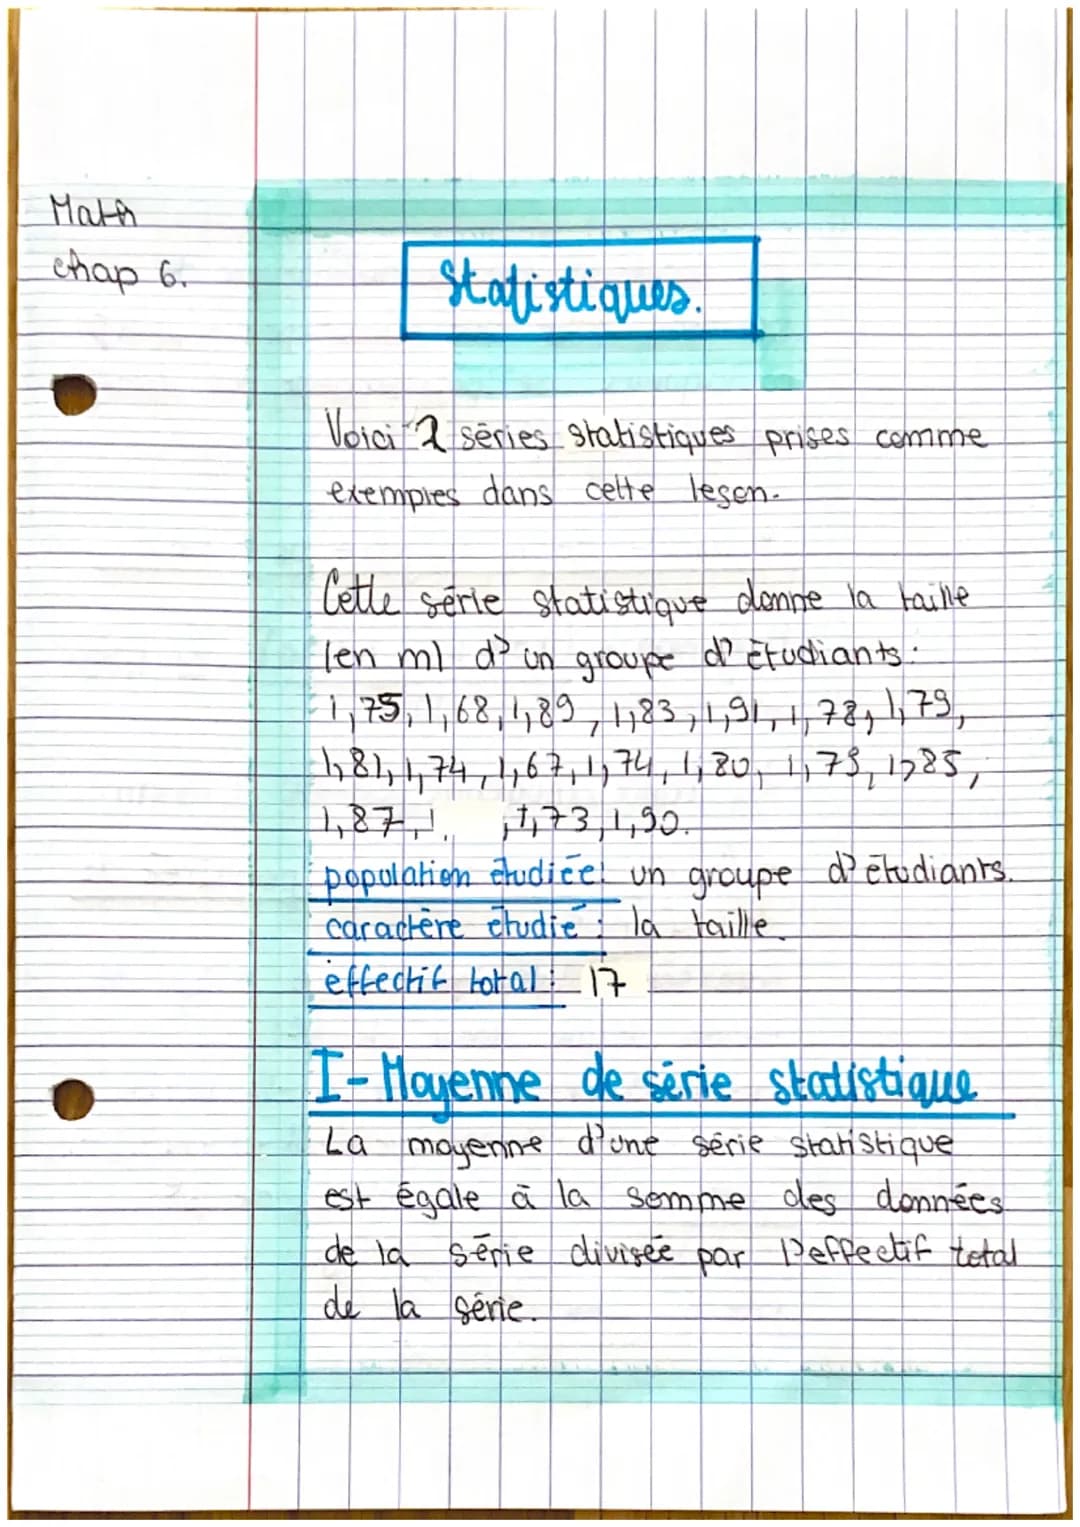 Math
chap 6.
Statistiques.
Voici 2 séries statistiques prises comme
exemples dans cette leçon.
Cette série statistique donne la taille
(en m) d'un groupe d'étudiants :
1,75, 1,68, 1,89, 1,83, 1,91, 1,78, 1,79,
1,81, 1,74, 1,67, 1,74, 1,80, 1,73, 1,85,
1,87, 1, , 1,73, 1,90.
population étudiée: un groupe d'étudiants.
caractère étudié : la taille.
effectif total : 17
I- Moyenne de série statistique
La moyenne d'une série statistique
est égale à la somme des données
de la série divisée par l'effectif total
de la série.